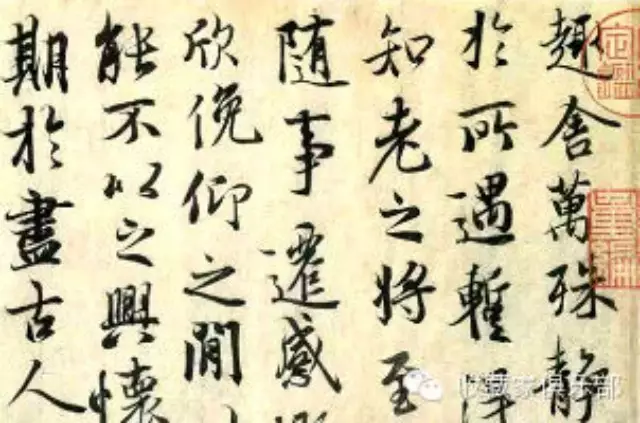 趣舍萬殊静
於所遇暫得
知老之将至
随事遷感慨
欣俛仰之閒
能不以之興懷
期於盡古人
收藏家俱乐部